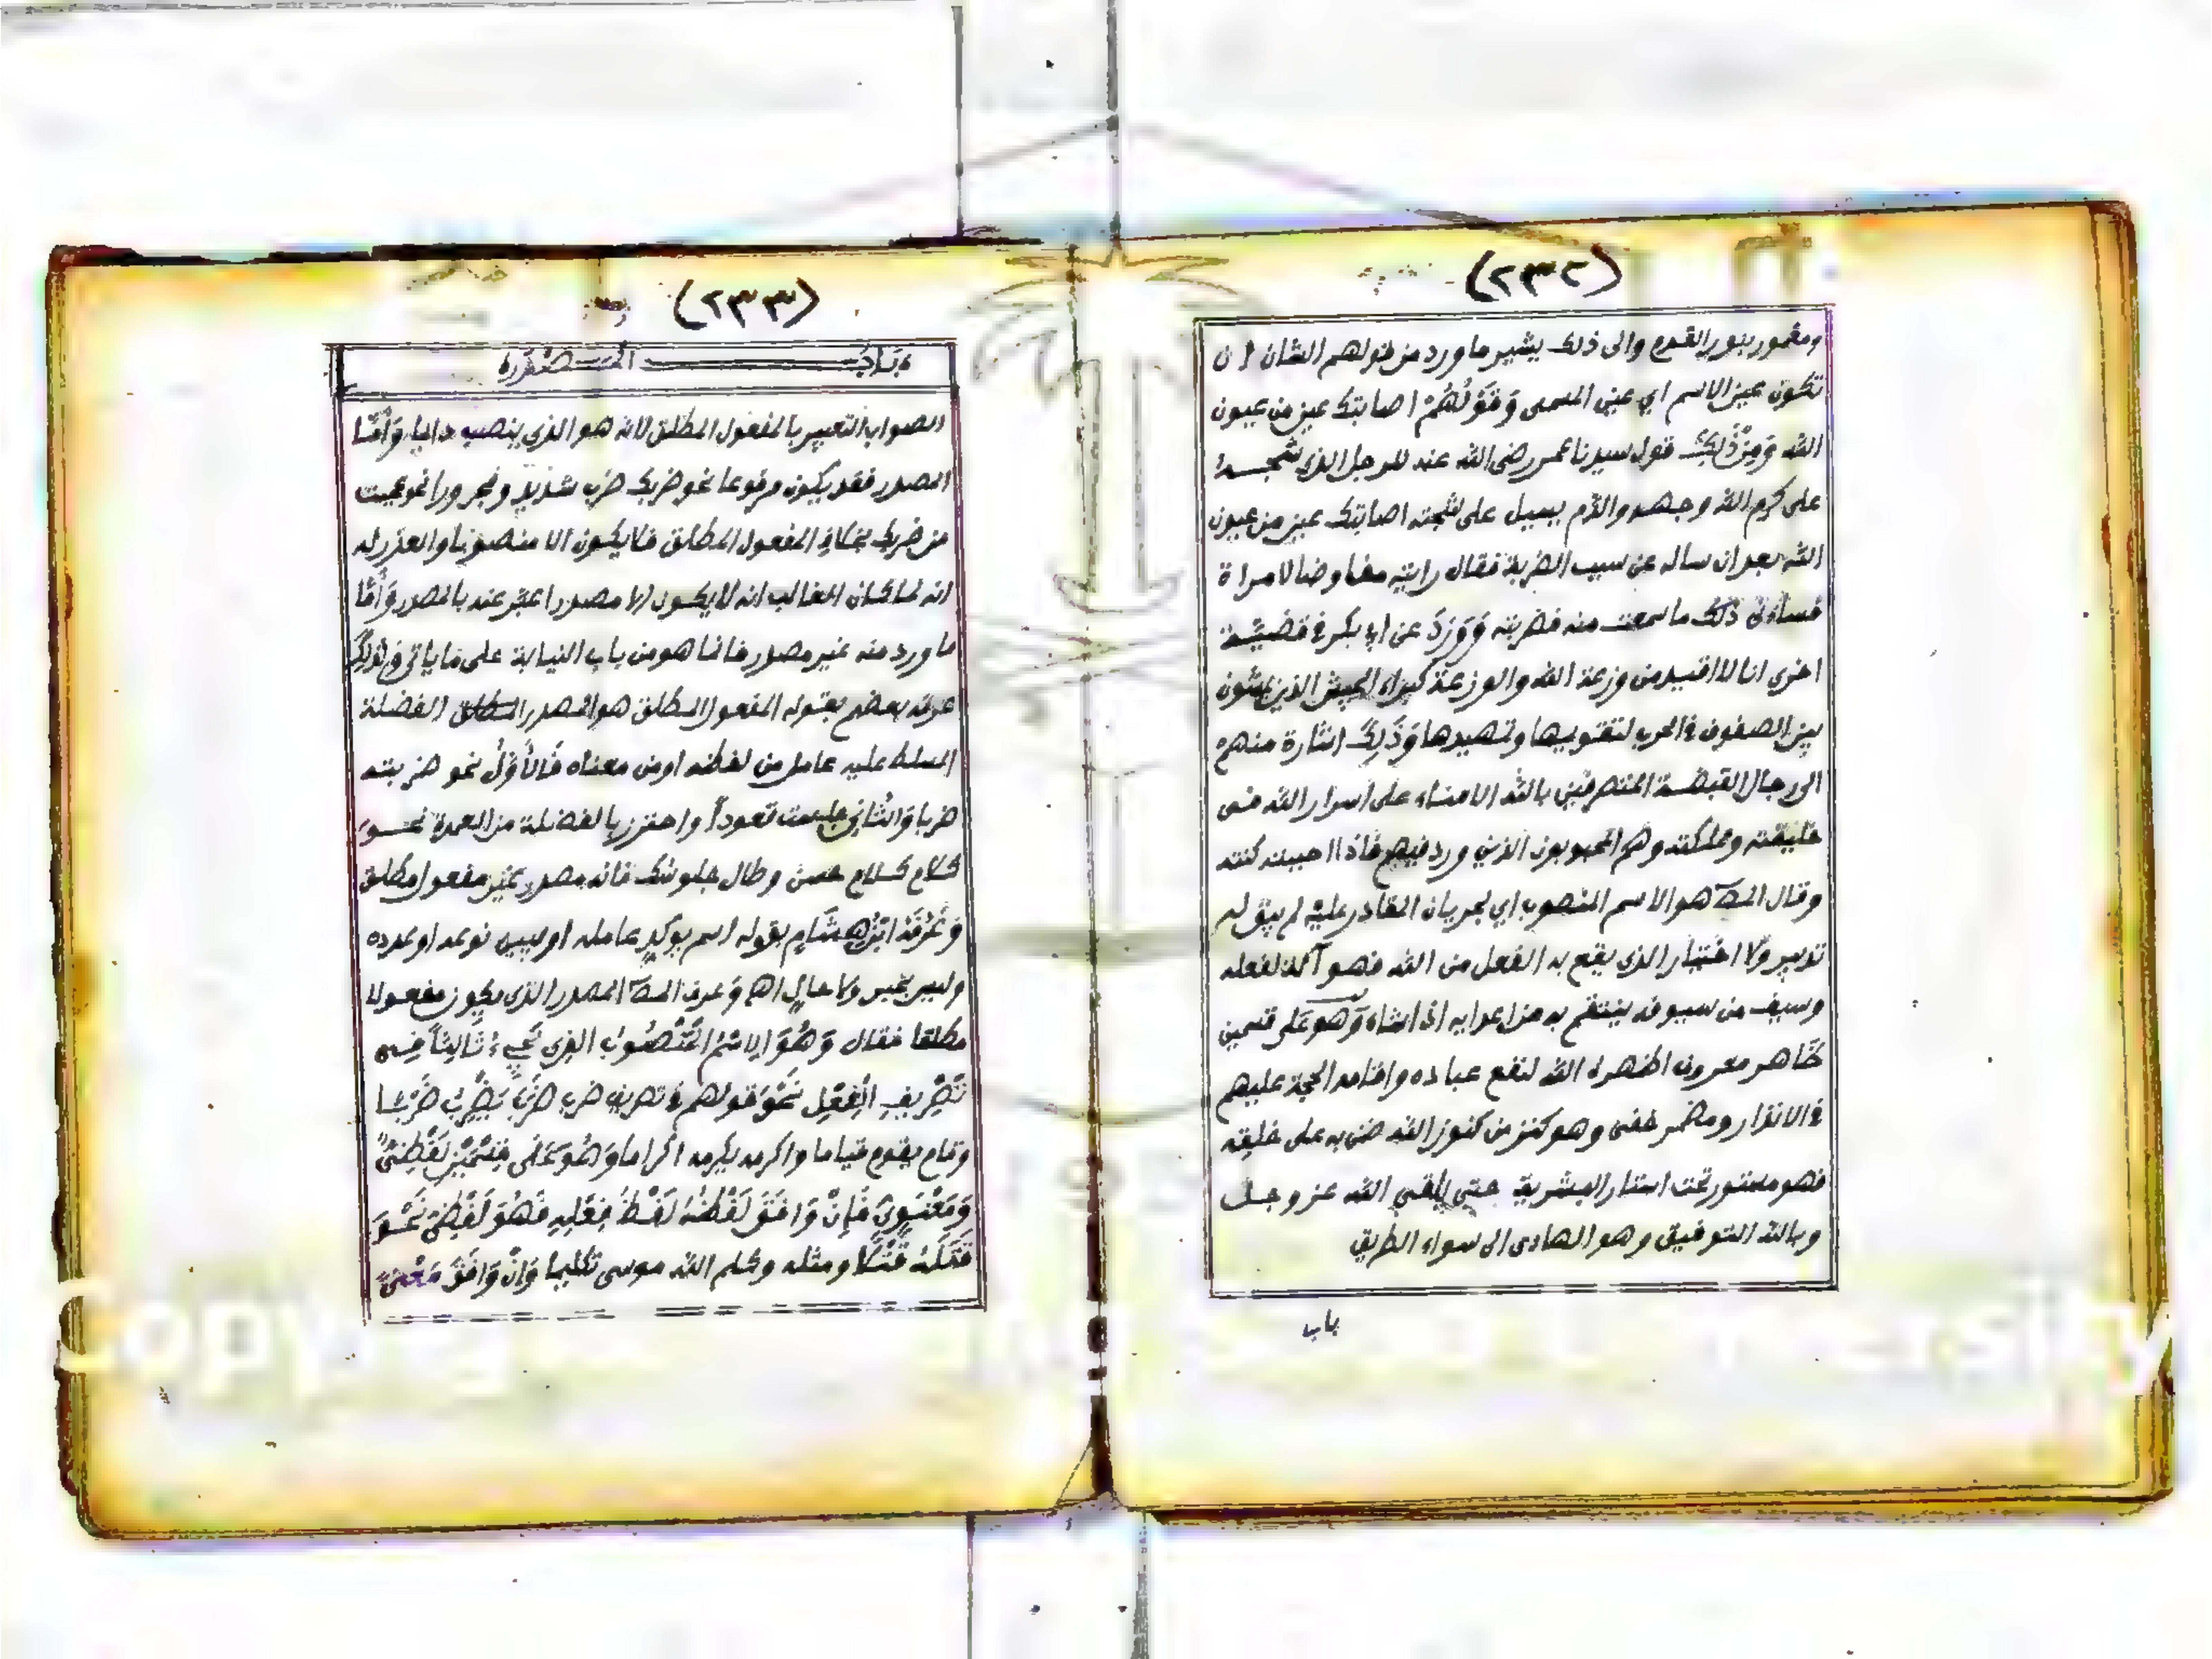 (٢٣٢)
ومغمور بنور القدم والى ذلك يشير ما ورد من قولهم الشان ان
تكون عين الاسم اي عين المسمى وَقَوْلُهُمْ اصابتك عين من عيون
الله وَمِنْ ذَلِكَ قول سيدنا عمر رضى الله عنه للرجل الذى شجه
على كرم الله وجهه والدم يسيل على شجته اصابتك عين من عيون
الله بعد ان ساله عن سبب الضربة فقال رايته مفاوضا لامراة
فساءنى ذلك ما سمعت منه فضربته وَوَرَدَ عن ابى بكر فى قضيّة
اخرى انا لا اقيد من وزعة الله والوزعة كبراء الجيش الذين يمشون
بين الصفوف فى الحرب لتقويمها وتمهيدها وَذَلِكَ اشارة منهم
الى رجال القبضة المتصرفين بالله الامناء على اسرار الله فى
خليقته ومملكته وهم المحبوبون الذين ورد فيهم فاذا احببته كنته
وقال المص هو الاسم المنصوب اي لجريان المقادر عليه لم يبق له
تدبير ولا اختيار الذى يقع به الفعل من الله فهو آلة لفعله
وسيف من سيوفه ينتقم به من اعدايه اذا شاء وَهو على قسمين
ظاهر معروف اظهره الله لنفع عباده واقامة الحجة عليهم
فى الانذار ومضمر خفى وهو كنز من كنوز الله ضن به على خلقه
فهو مستور تحت استار البشرية حتى يلقى الله عز وجل
وبالله التوفيق وهو الهادى الى سواء الطريق
باب
(٢٣٣)
بَابُ الْمَصْدَرِ
الصواب التعبير بالمفعول المطلق لانه هو الذي ينصب دايما وَأَمَّا
المصدر فقد يكون مرفوعا نحو ضربك ضرب شديد ومجرورا نحو عجبت
من ضربك بخلاف المفعول المطلق فلا يكون الا منصوبا والعذر له
انه لما كان الغالب انه لا يكون الا مصدرا عبّر عنه بالمصدر وَأَمَّا
ما ورد منه غير مصدر فانما هو من باب النيابة على ما ياتى
عرفه بعضهم بقوله المفعول المطلق هو المصدر الفضلة
المسلط عليه عامل من لفظه او من معناه فَالأَوَّلُ نحو ضربته
ضربا وَالثَّانِي جلست قعوداً واحترز بالفضلة من العمدة نحو
كلام كلام حسن وطال جلوسك فانه مصدر غير مفعول مطلق
وَعَرَّفَهُ ابْنُ هِشَام بقوله اسم يوكد عامله او يبين نوعه او عدده
وليس بخبر ولا حال اه وَعرف المص المصدر الذى يكون مفعولا
مطلقا فقال وَهُوَ الِاسْمُ الْمَنْصُوبُ الذى يَجِيءُ ثَالِثاً فِى
تَصْرِيفِ الْفِعْلِ نَحْوَ قولهم فى تصريف ضرب ضَرَبَ يَضْرِبُ ضَرْبًا
وقام يقوم قياما واكرمه يكرمه اكراما وَهُوَ عَلَى قِسْمَيْنِ لَفْظِيٌّ
وَمَعْنَوِيٌّ فَإِنْ وَافَقَ لَفْظُهُ لَفْظَ فِعْلِهِ فَهُوَ لَفْظِيٌّ نَحْوَ
قَتَلْتُهُ قَتْلًا ومثله وكلم الله موسى تكليما وَإِنْ وَافَقَ مَعْنَى